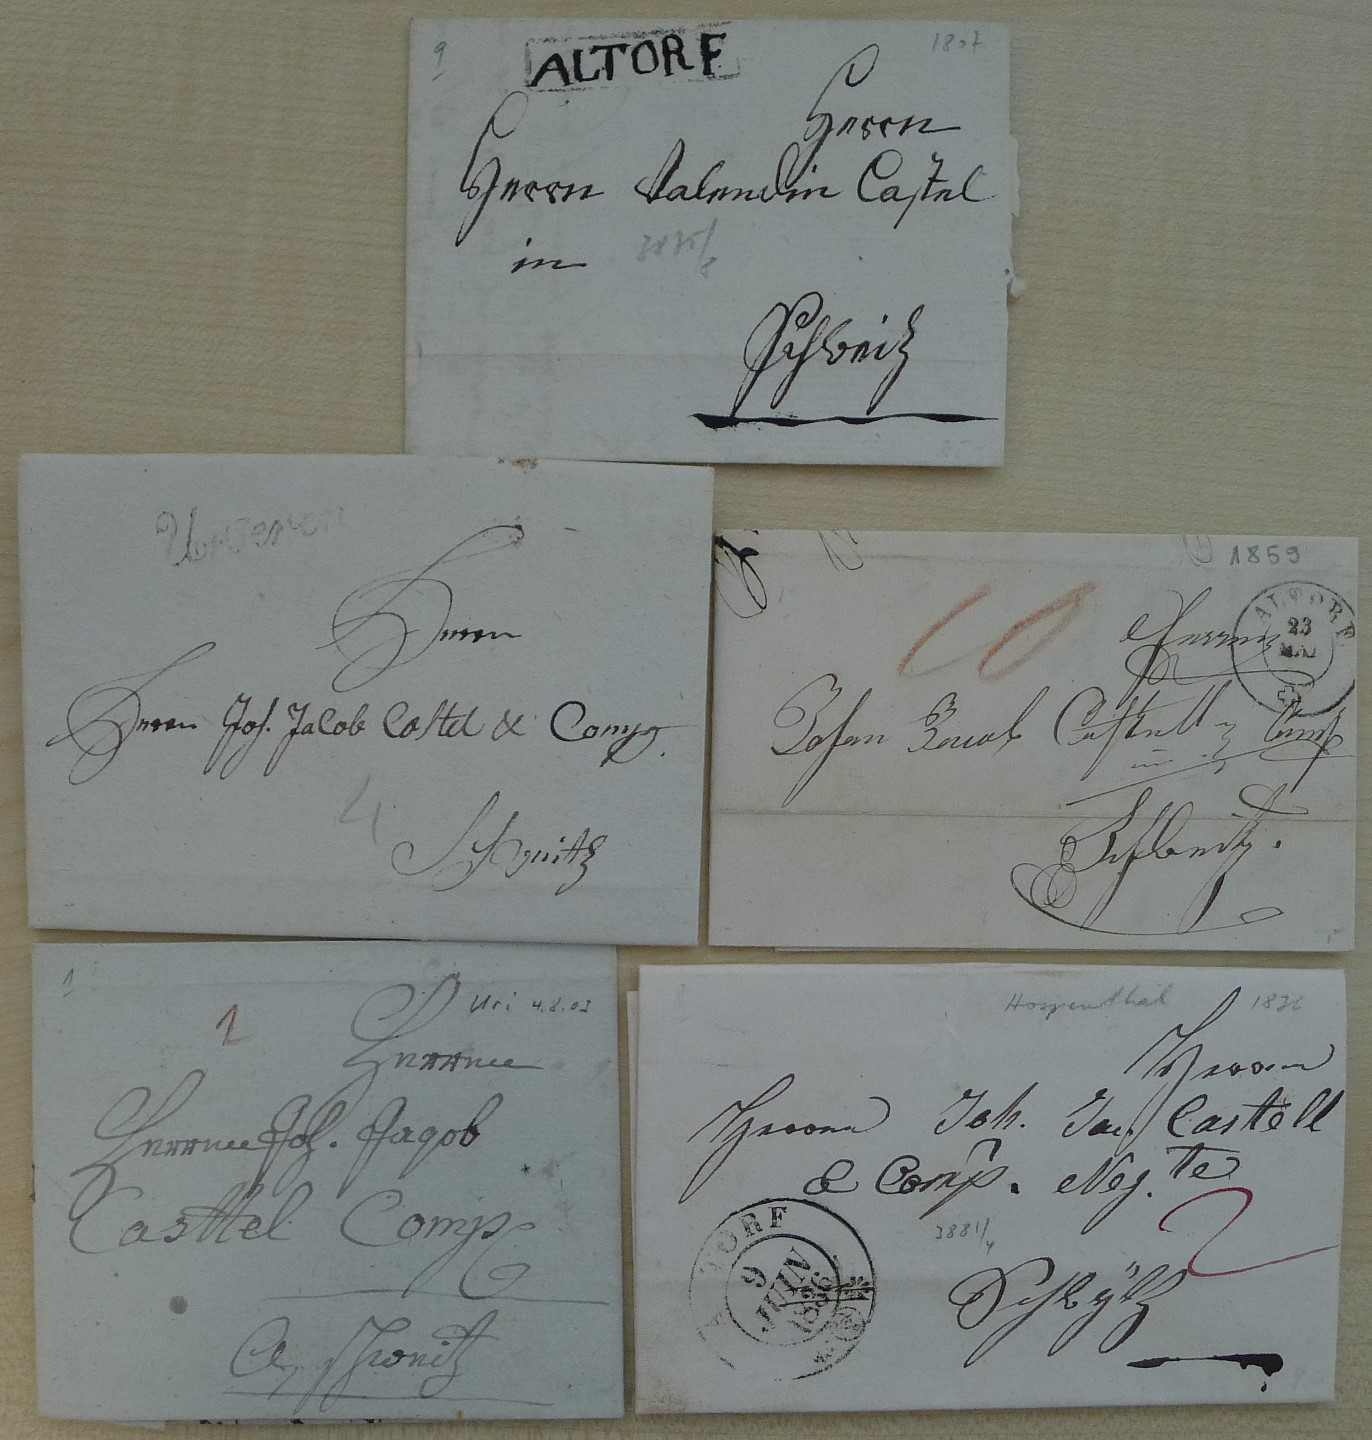 9
1807
ALTORF
Herrn
Herrn Valendin Castel
in
Schweitz
Herrn
Herrn Joh. Jacob Castel & Comp.
4
Schweitz
1859
10
ALTORF
23
MAI
Herrn
Johan Jacob Castell & Comp
in
Schweitz.
1
1
Uri 4.8.03
Herrnen
Herrnen Joh. Jaqob
Casttel Comp
a Schweitz
Hospenthal
1836
Herrn
Herrn Joh. Jac. Castell
& Comp. Neg.te
2
ALTORF
9
JUIN
1836
3881/4
Schwÿtz